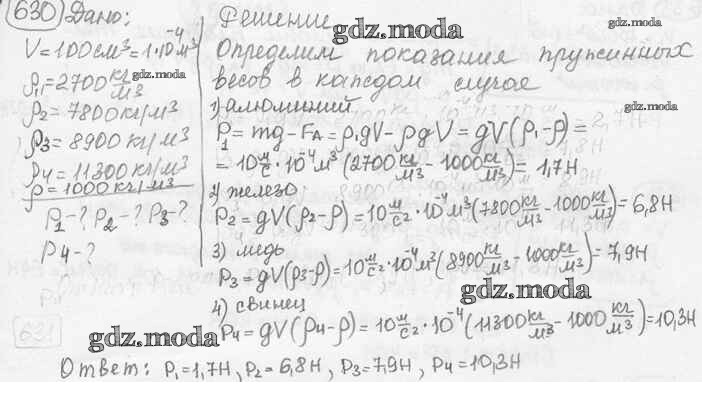 630 Дано:
V=100см³=1·10⁻⁴м³
ρ₁=2700 кг/м³
ρ₂=7800кг/м³
ρ₃=8900кг/м³
ρ₄=11300кг/м³
ρ=1000кг/м³
P₁-? P₂-? P₃-?
P₄-?
Решение
Определим показания пружинных
весов в каждом случае
1) алюминий
P₁=mg-Fₐ=ρ₁gV-ρgV=gV(ρ₁-ρ)=
=10 м/с²·10⁻⁴м³(2700 кг/м³-1000 кг/м³)=1,7Н
2) железо
P₂=gV(ρ₂-ρ)=10 м/с²·10⁻⁴м³(7800 кг/м³-1000 кг/м³)=6,8Н
3) медь
P₃=gV(ρ₃-ρ)=10 м/с²·10⁻⁴м³(8900 кг/м³-1000 кг/м³)=7,9Н
4) свинец
P₄=gV(ρ₄-ρ)=10 м/с²·10⁻⁴(11300 кг/м³-1000 кг/м³)=10,3Н
Ответ: P₁=1,7Н, P₂=6,8Н, P₃=7,9Н, P₄=10,3Н
gdz.moda
gdz.moda
gdz.moda
gdz.moda
gdz.moda
631